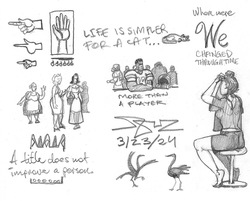 LIFE IS SIMPLER
FOR A CAT...
When were
We
CHANGED
THROUGH TIME
MORE THAN
A PLAYER
3/23/24
A title does not
improve a person.